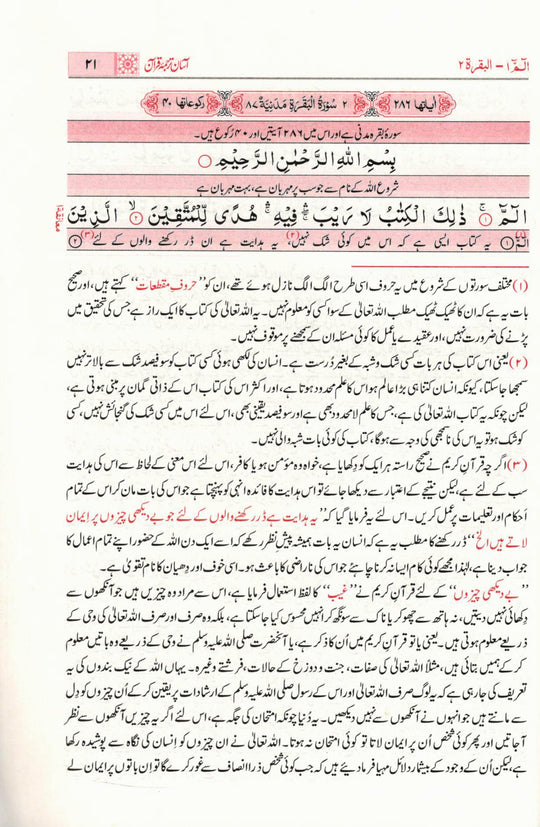 الٓمّٓ ۱ - البقرۃ ۲
آسان ترجمۂ قرآن
۲۱
اٰیاتھا ۲۸۶
۲ سُوْرَۃُ الْبَقَرَۃِ مَدَنِیَّۃٌ ۸۷
رکوعاتھا ۴۰
سورۂ بقرہ مدنی ہے اور اس میں ۲۸۶ آیتیں اور ۴۰ رُکوع ہیں۔
بِسْمِ اللّٰهِ الرَّحْمٰنِ الرَّحِيْمِ
شروع اللہ کے نام سے جو سب پر مہربان ہے، بہت مہربان ہے
الٓمّٓ ۚ﴿۱﴾ ذٰلِكَ الْكِتٰبُ لَا رَيْبَ ۛۖ فِيْهِ ۛۚ هُدًى لِّلْمُتَّقِيْنَ ﴿۲﴾ۙ الَّذِيْنَ
معانقۃ ۱
الٓمّٓ(۱) ﴿۱﴾ یہ کتاب ایسی ہے کہ اس میں کوئی شک نہیں،(۲) یہ ہدایت ہے ان ڈر رکھنے والوں کے لئے(۳) ﴿۲﴾
(۱) مختلف سورتوں کے شروع میں یہ حروف اسی طرح الگ الگ نازل ہوئے تھے، ان کو ”حروفِ مقطعات“ کہتے ہیں، اور صحیح
بات یہ ہے کہ ان کا ٹھیک ٹھیک مطلب اللہ تعالیٰ کے سوا کسی کو معلوم نہیں۔ یہ اللہ تعالیٰ کی کتاب کا ایک راز ہے جس کی تحقیق میں
پڑنے کی ضرورت نہیں، اور عقیدے یا عمل کا کوئی مسئلہ ان کے سمجھنے پر موقوف نہیں۔
(۲) یعنی اس کتاب کی ہر بات کسی شک و شبہ کے بغیر دُرست ہے۔ انسان کی لکھی ہوئی کسی کتاب کو سو فیصد شک سے بالاتر نہیں
سمجھا جا سکتا، کیونکہ انسان کتنا ہی بڑا عالم ہو اس کا علم محدود ہوتا ہے، اور اکثر اس کی کتاب اس کے ذاتی گمان پر مبنی ہوتی ہے،
لیکن چونکہ یہ کتاب اللہ تعالیٰ کی ہے، جس کا علم لامحدود بھی ہے اور سو فیصد یقینی بھی، اس لئے اس میں کسی شک کی گنجائش نہیں، کسی
کو شک ہو تو یہ اس کی نا سمجھی کی وجہ سے ہوگا، کتاب کی کوئی بات شبہ والی نہیں۔
(۳) اگرچہ قرآنِ کریم نے صحیح راستہ ہر ایک کو دِکھایا ہے، خواہ وہ مؤمن ہو یا کافر، اس لئے اس معنی کے لحاظ سے اس کی ہدایت
سب کے لئے ہے، لیکن نتیجے کے اعتبار سے دیکھا جائے تو اس ہدایت کا فائدہ انہی کو پہنچتا ہے جو اس کی بات مان کر اس کے تمام
اَحکام اور تعلیمات پر عمل کریں۔ اس لئے یہ فرمایا گیا کہ ”یہ ہدایت ہے ڈر رکھنے والوں کے لئے جو بے دیکھی چیزوں پر ایمان
لاتے ہیں الخ“ ڈر رکھنے کا مطلب یہ ہے کہ انسان یہ بات ہمیشہ پیشِ نظر رکھے کہ اسے ایک دن اللہ کے حضور اپنے تمام اعمال کا
جواب دینا ہے، لہٰذا مجھے کوئی کام ایسا نہ کرنا چاہئے جو اس کی ناراضی کا باعث ہو۔ اسی خوف اور دِھیان کا نام تقویٰ ہے۔
”بے دیکھی چیزوں“ کے لئے قرآنِ کریم نے ”غیب“ کا لفظ استعمال فرمایا ہے، اس سے مراد وہ چیزیں ہیں جو آنکھوں سے
دِکھائی نہیں دیتیں، نہ ہاتھ سے چھو کر یا ناک سے سونگھ کر اُنہیں محسوس کیا جا سکتا ہے، بلکہ وہ صرف اور صرف اللہ تعالیٰ کی وحی کے
ذریعے معلوم ہوتی ہیں۔ یعنی یا تو قرآنِ کریم میں اُن کا ذکر ہے، یا آنحضرت صلی اللہ علیہ وسلم نے وحی کے ذریعے وہ باتیں معلوم
کر کے ہمیں بتائی ہیں، مثلاً اللہ تعالیٰ کی صفات، جنت و دوزخ کے حالات، فرشتے وغیرہ۔ یہاں اللہ کے نیک بندوں کی یہ
تعریف کی جا رہی ہے کہ یہ لوگ صرف اللہ تعالیٰ اور اس کے رسول صلی اللہ علیہ وسلم کے ارشادات پر یقین کر کے اُن چیزوں کو دِل
سے مانتے ہیں جو انہوں نے آنکھوں سے نہیں دیکھیں۔ یہ دُنیا چونکہ امتحان کی جگہ ہے، اس لئے اگر یہ چیزیں آنکھوں سے نظر
آ جاتیں اور پھر کوئی شخص اُن پر ایمان لاتا تو کوئی امتحان نہ ہوتا۔ اللہ تعالیٰ نے ان چیزوں کو انسان کی نگاہ سے پوشیدہ رکھا
ہے، لیکن اُن کے وجود کے بیشمار دلائل مہیا فرما دیئے ہیں کہ جب کوئی شخص ذرا انصاف سے غور کرے گا تو اِن باتوں پر ایمان لے